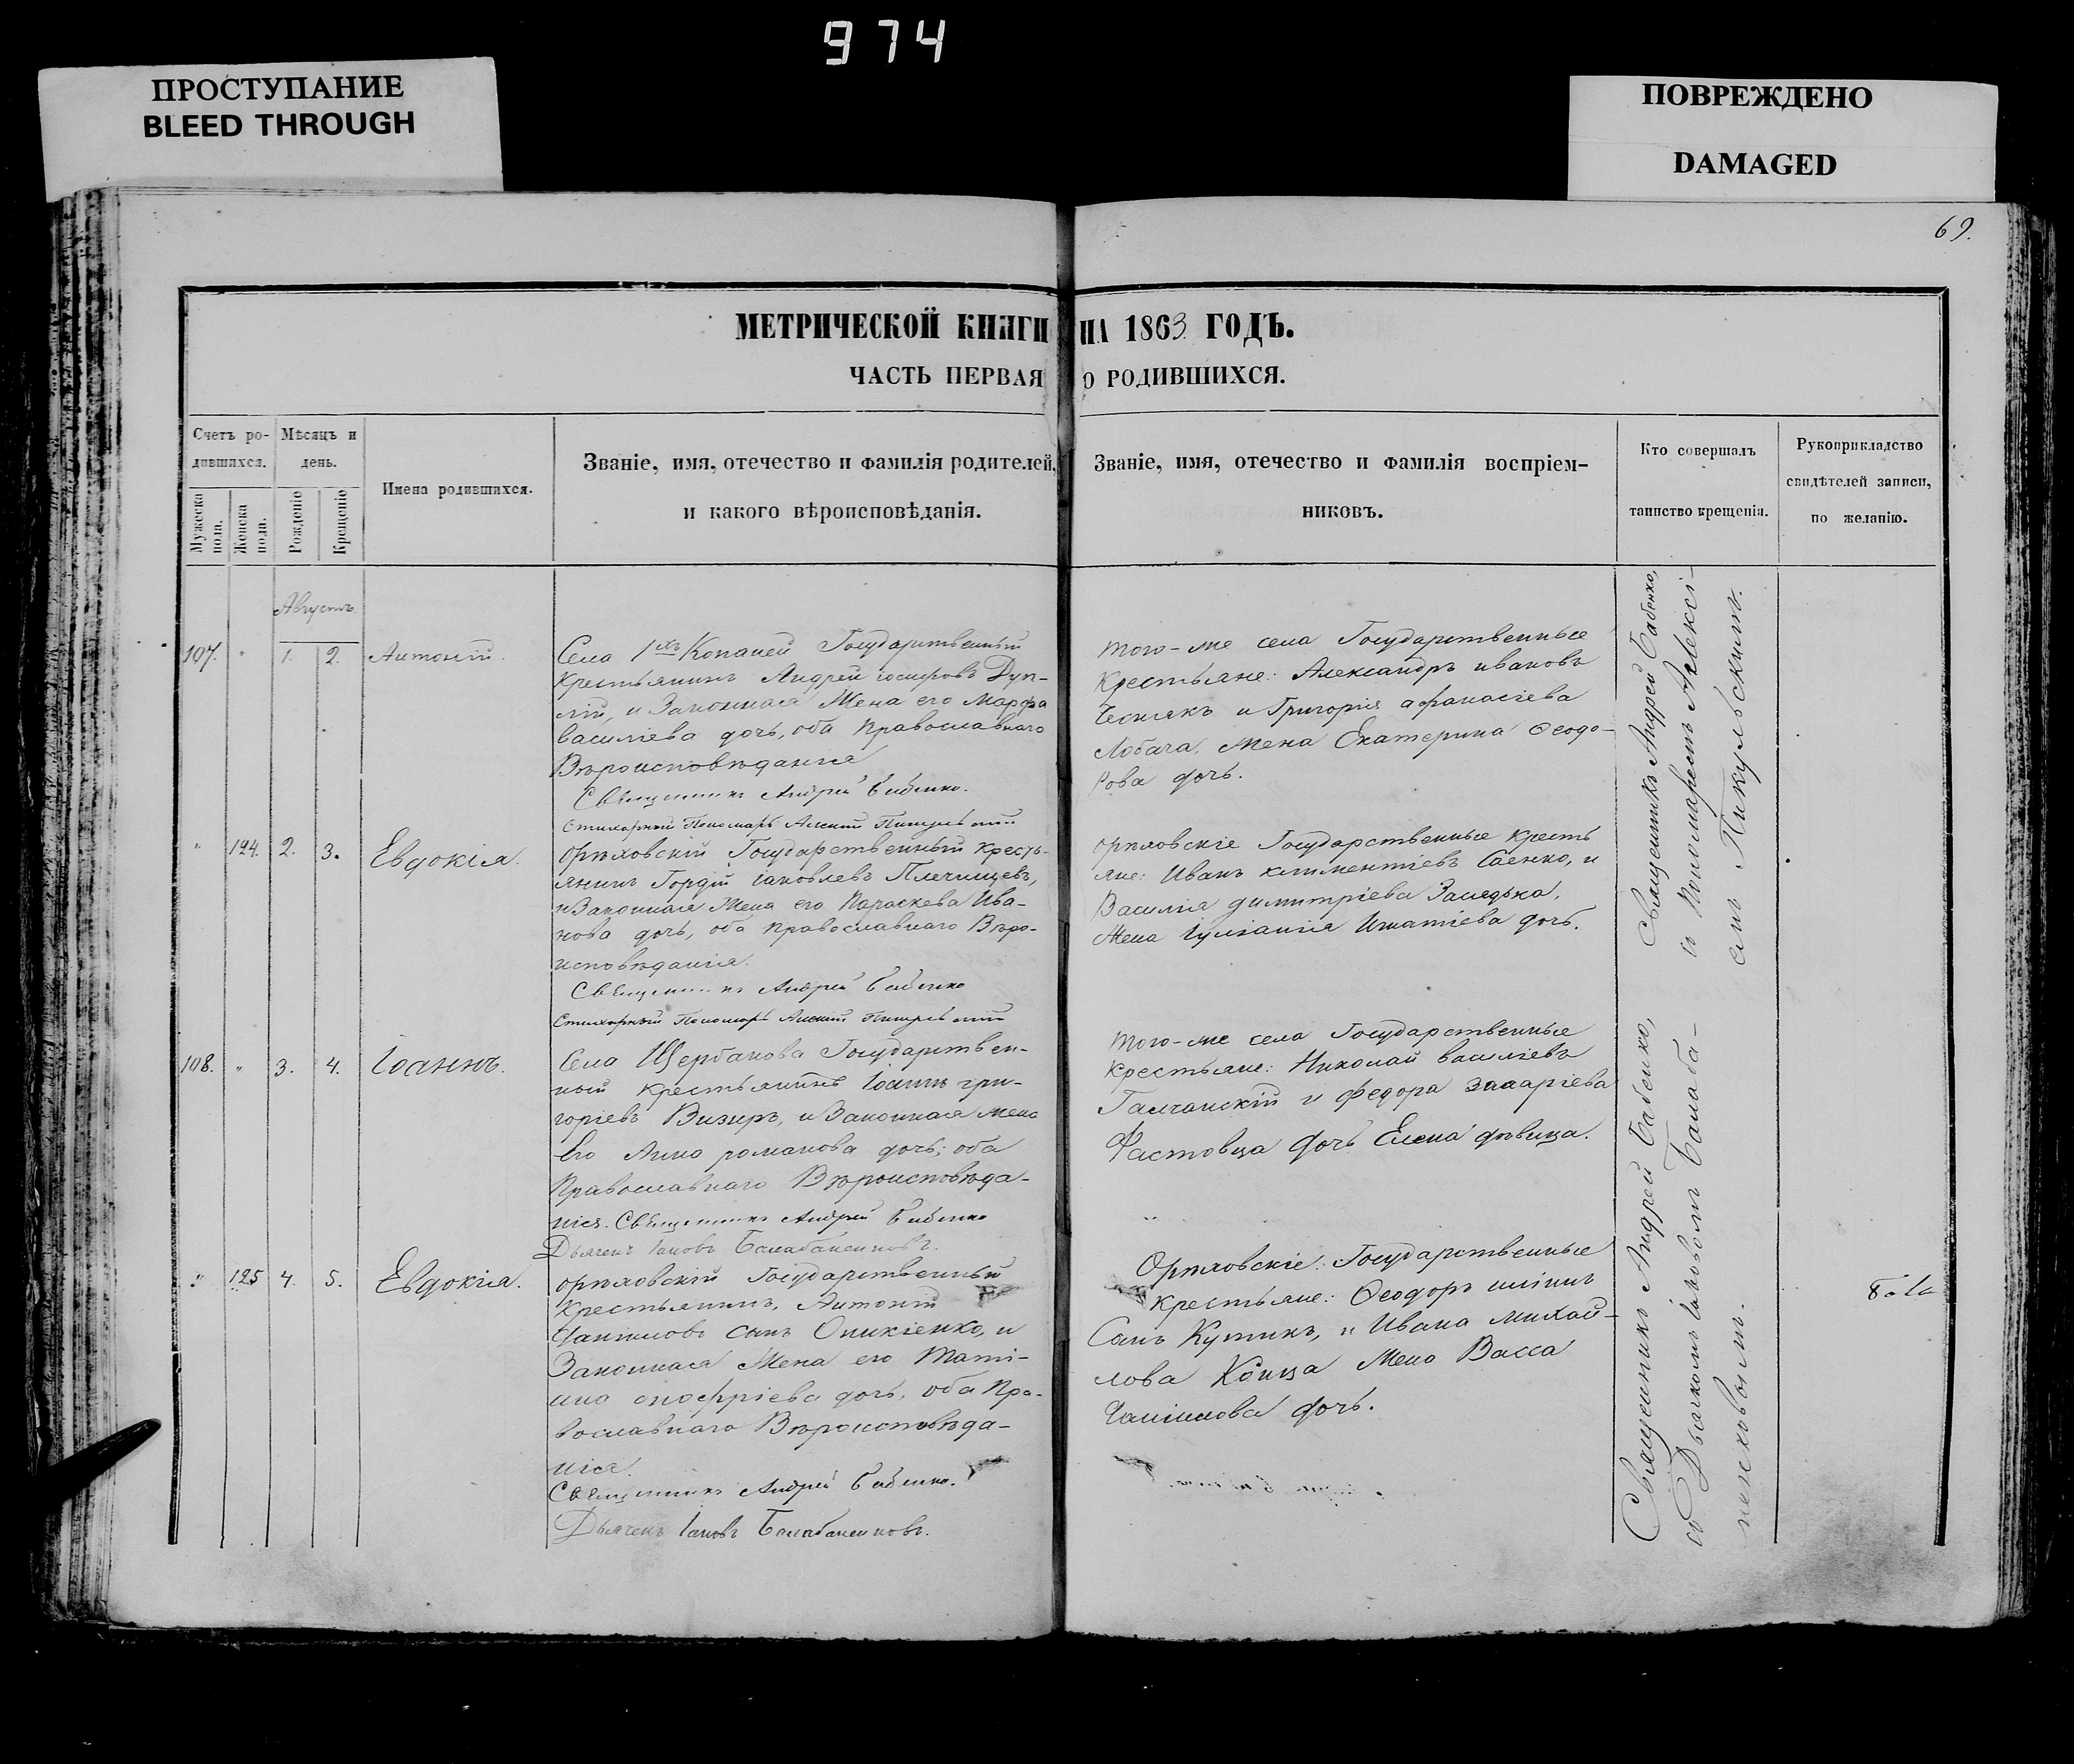 974
ПРОСТУПАНИЕ
BLEED THROUGH
ПОВРЕЖДЕНО
DAMAGED
69.
МЕТРИЧЕСКОЙ КНИГИ НА 1863 ГОДЪ.
ЧАСТЬ ПЕРВАЯ О РОДИВШИХСЯ.
Счетъ ро-
дившихся.
Мужеска
пола.
Женска
пола.
Мѣсяцъ и
день.
Рожденіе
Крещеніе
Имена родившихся.
Званіе, имя, отечество и фамилія родителей,
и какого вѣроисповѣданія.
Званіе, имя, отечество и фамилія воспріем-
никовъ.
Кто совершалъ
таинство крещенія.
Рукоприкладство
свидѣтелей записи,
по желанію.
Августъ
107. " 1. 2. Антоній.
Села 1хъ Копаней Государственный
крестьянинъ Андрей іосифовъ Дуп-
лій, и Законная Жена его Марфа
василіева дочь, оба Православнаго
Вѣроисповѣданія
Священникъ Андрей Бабенко.
Стихарный Пономарь Алексій Пикульскій
того-же села Государственные
Крестьяне: Александръ ивановъ
Чеснакъ и Григорія афанасіева
Лобача, жена Екатерина Ѳеодо-
рова дочь.
" 124. 2. 3. Евдокія.
орѣховскій Государственный кресть-
янинъ Гордій іаковлевъ Плечищевъ,
и Законная Жена его Параскева Ива-
нова дочь, оба православнаго Вѣро-
исповѣданія.
Священникъ Андрей Бабенко
Стихарный Пономарь Алексій Пикульскій
орѣховскіе Государственные кресть
яне: Иванъ климентіевъ Саенко, и
Василія димитріева
Жена Іуліанія Игнатіева дочь.
Священникъ Андрей Бабенко,
съ Пономаремъ Алексі-
емъ Пикульскимъ.
108. " 3. 4. Іоаннъ.
Села Щербакова Государствен-
ный крестьянинъ Іоаннъ гри-
горіевъ Визиръ, и Законная жена
Его Анна романова дочь; оба
Православнаго Вѣроисповѣда-
нія. Священникъ Андрей Бабенко
Дьячекъ Іаковъ Балабаненковъ.
того-же села Государственные
крестьяне: Николай василіевъ
Галчанскій и федора захаріева
Фастовца дочь Елена дѣвица.
" 125 4. 5. Евдокія.
орѣховскій Государственный
Крестьянинъ, Антоній
Даніиловъ сынъ Оникіенко, и
Законная Жена его Таті-
ана онофріева дочь, оба Пра-
вославнаго Вѣроисповѣда-
нія.
Священникъ Андрей Бабенко.
Дьячекъ Іаковъ Балабаненковъ.
Орѣховскіе: Государственные
крестьяне: Ѳеодоръ иліинъ
Сынъ Кутикъ, и Ивана михай-
лова Коица жена Васса
Даніилова дочь.
Священникъ Андрей Бабенко,
съ Дьячкомъ Іаковомъ Балаба-
ненковымъ.